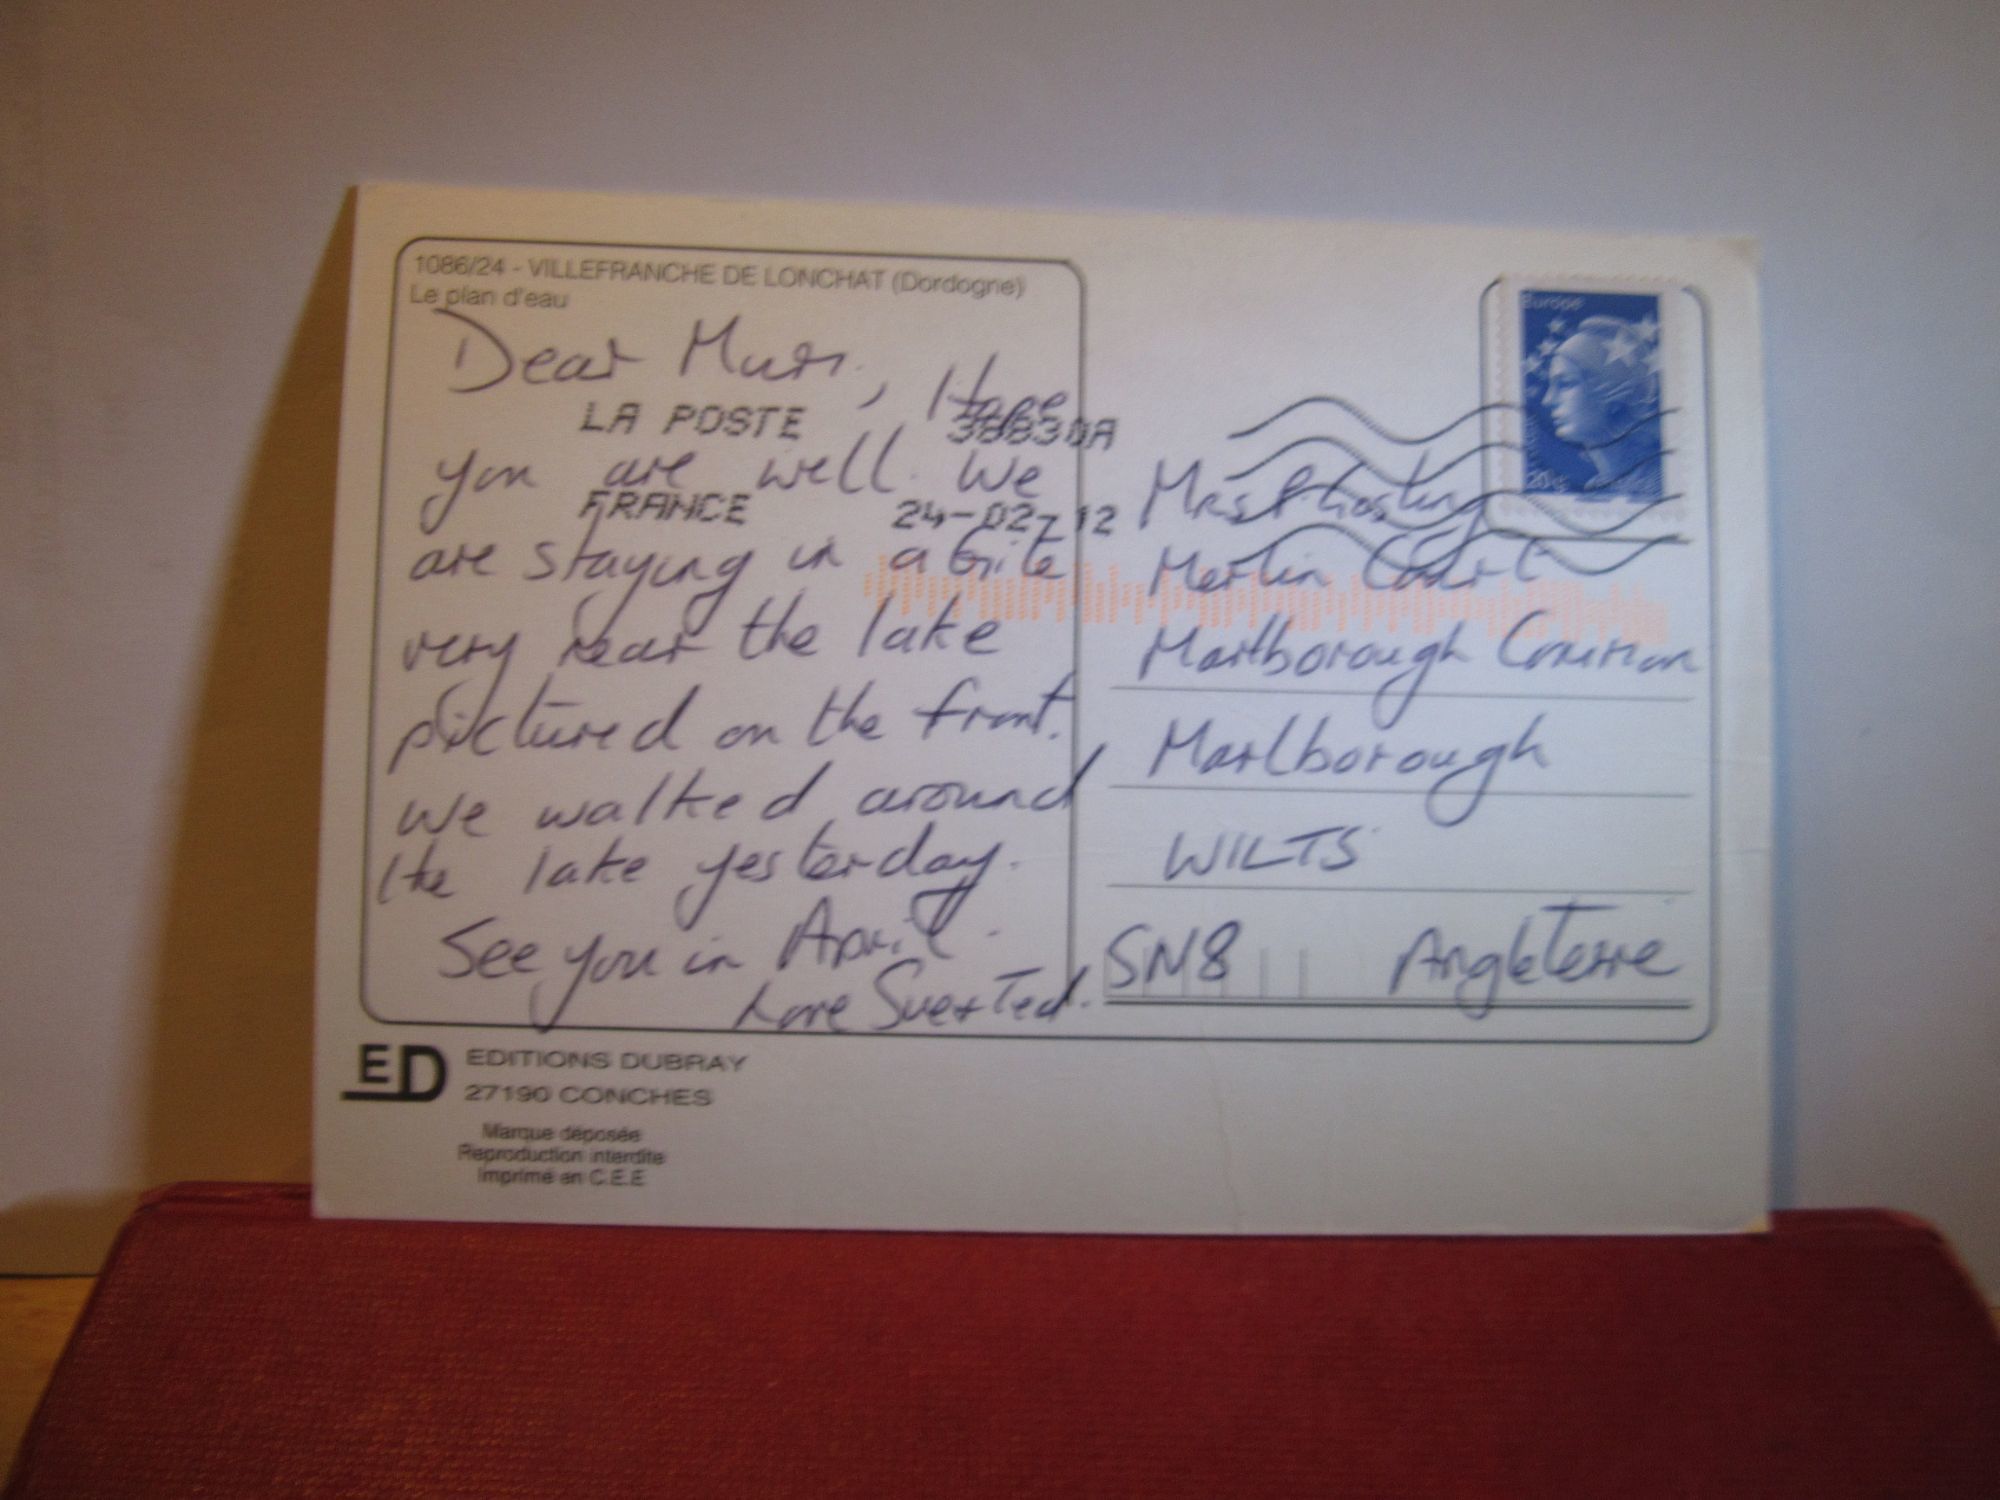 1086/24 - VILLEFRANCHE DE LONCHAT (Dordogne)
Le plan d'eau
Dear Mum, Hope
you are well. We
are staying in a Gite
very near the lake
pictured on the front.
We walked around
the lake yesterday.
See you in April.
Love Sue + Ted.
LA POSTE 38830A
FRANCE 24-02-12
Europe
Mrs P
Merlin Court
Marlborough Common
Marlborough
WILTS
SN8 Angleterre
ED EDITIONS DUBRAY
27190 CONCHES
Marque déposée
Reproduction interdite
Imprimé en C.E.E